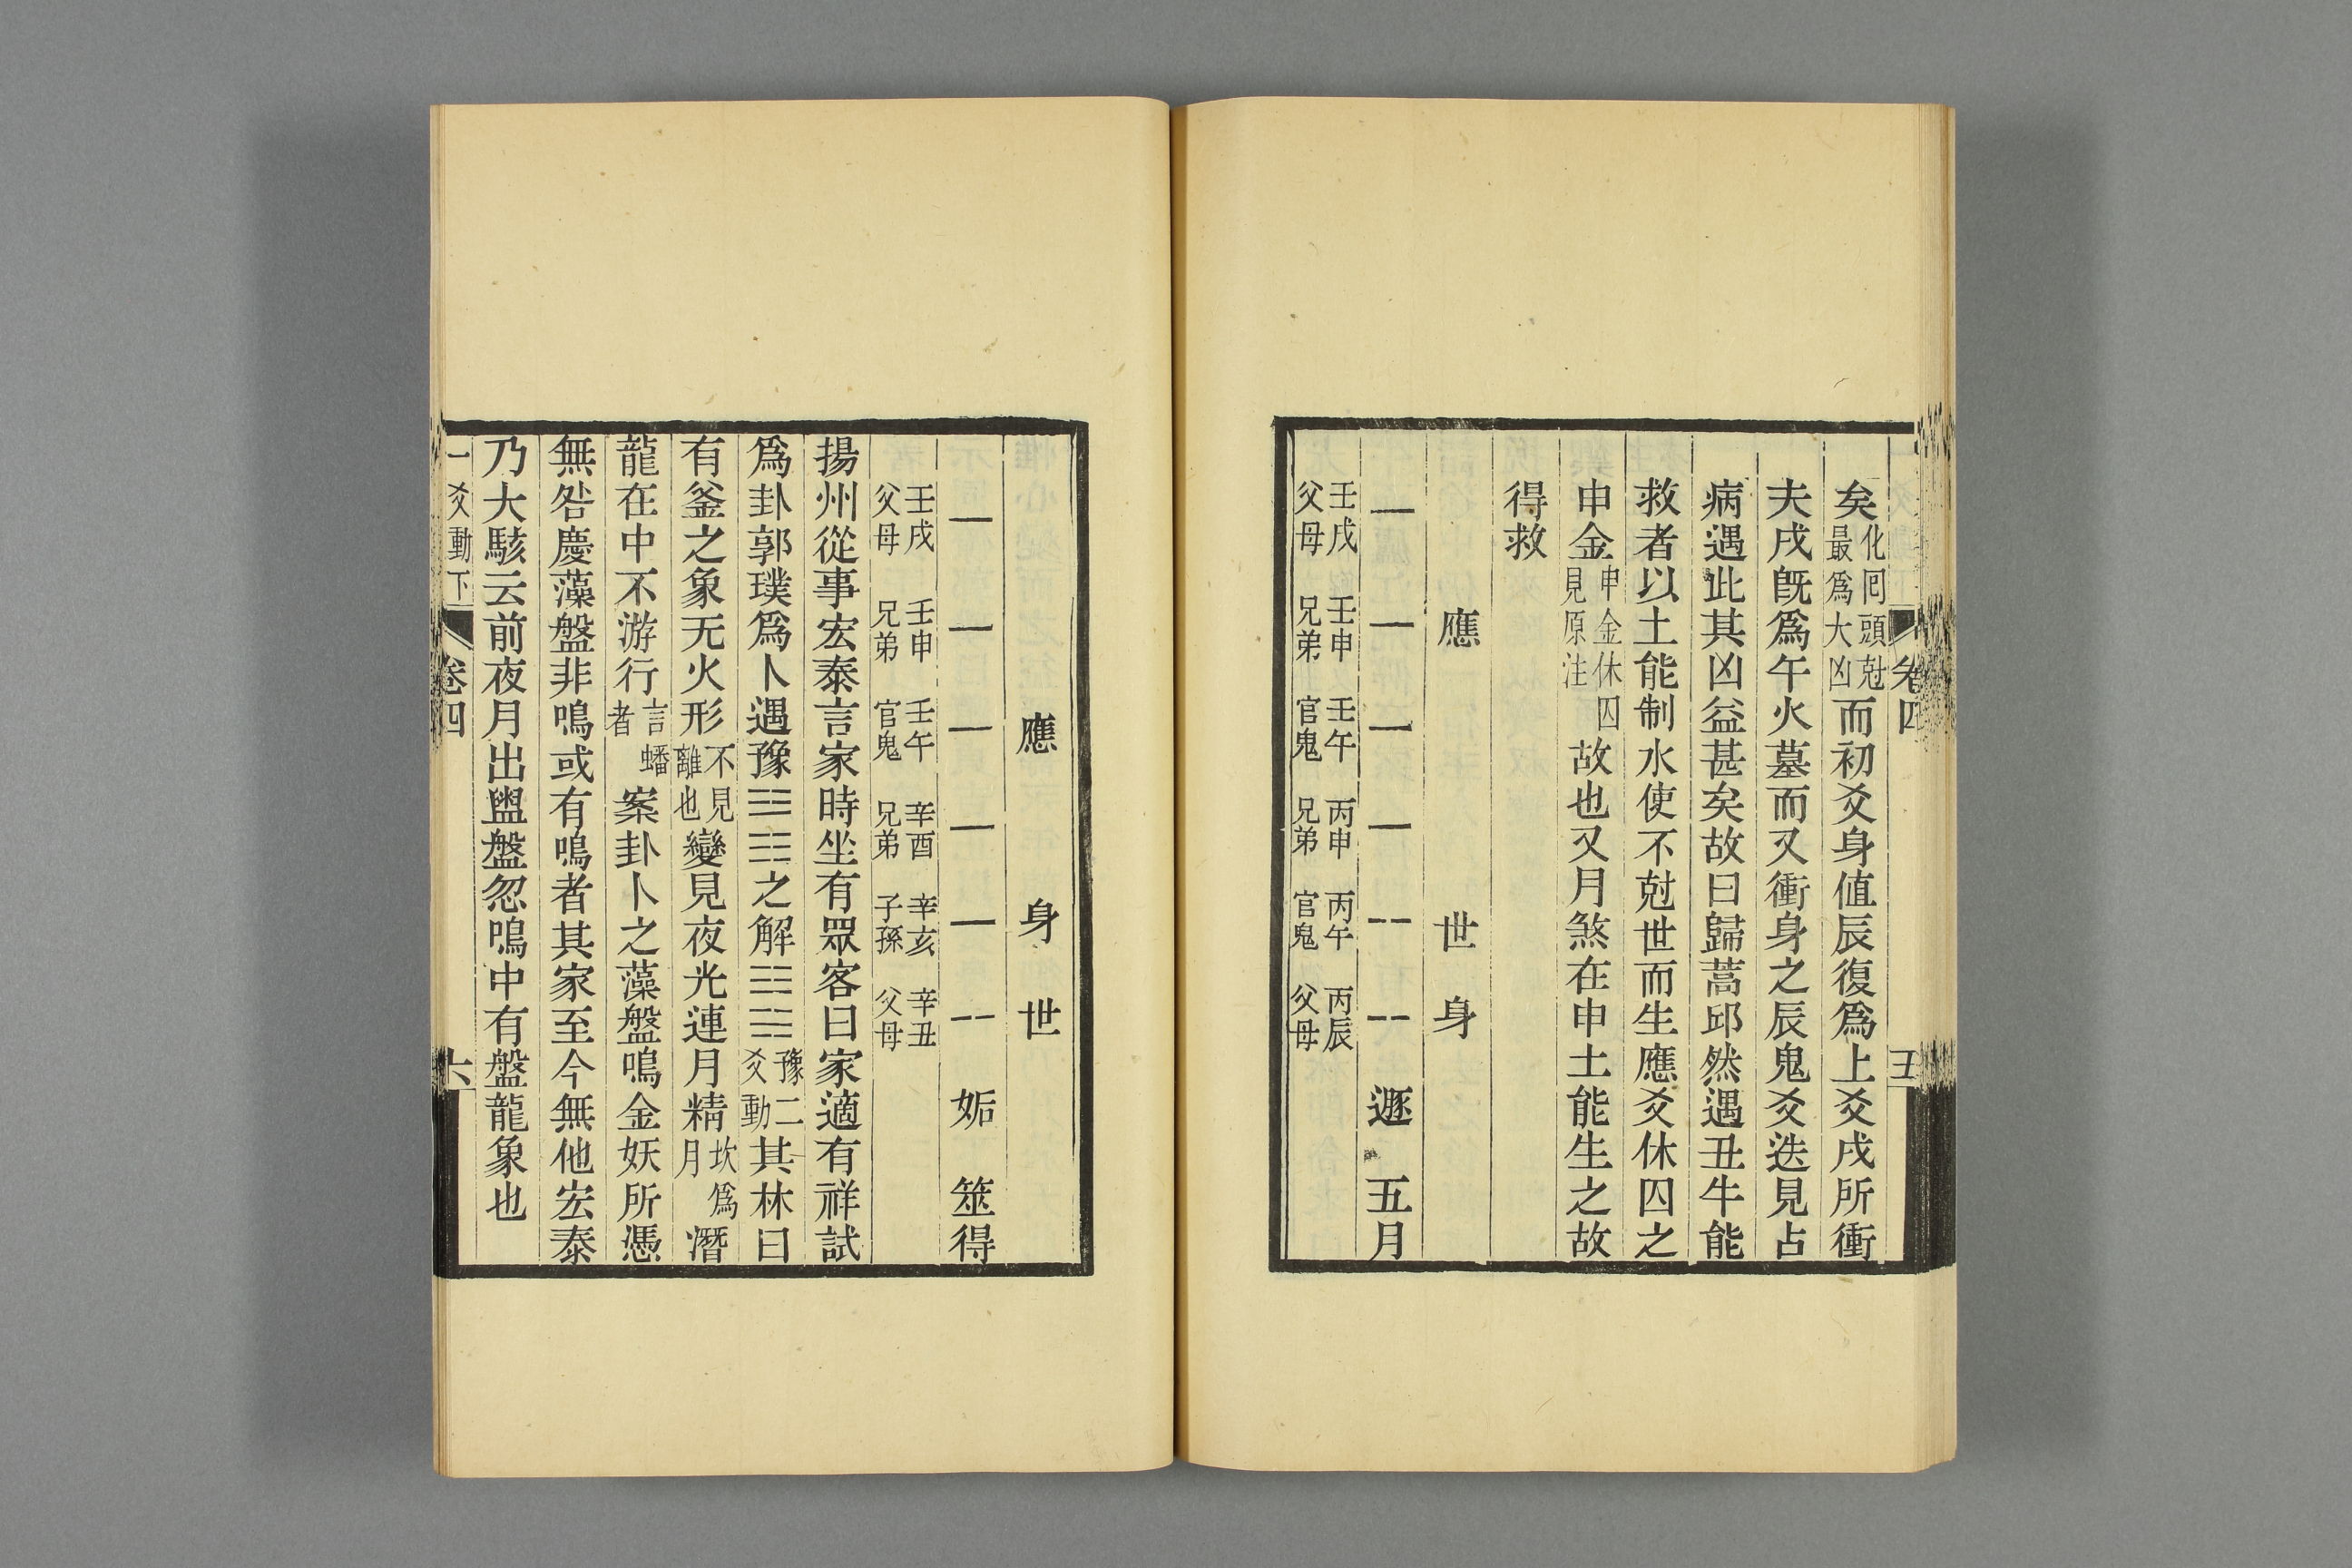 卷四 五
矣化囘頭尅最爲大凶而初爻身值辰復爲上爻戌所衝
夫戌旣爲午火墓而又衝身之辰鬼爻迭見占
病遇此其凶益甚矣故曰歸蒿邱然遇丑牛能
救者以土能制水使不尅世而生應爻休囚之
申金申金休囚見原注故也又月煞在申土能生之故
得救
應 世 身
⚊ ⚊ ⚊ ⚊ ⚋ ⚋ 遯 五月
壬戌父母 壬申兄弟 壬午官鬼 丙申兄弟 丙午官鬼 丙辰父母
應 身 世
⚊ ⚊ ⚊ ⚊ ⚊ ⚋ 姤 筮得
壬戌父母 壬申兄弟 壬午官鬼 辛酉兄弟 辛亥子孫 辛丑父母
揚州從事宏泰言家時坐有眾客曰家適有祥試
爲卦郭璞爲卜遇豫☳☷之解☳☵豫二爻動其林曰
有釜之象无火形不見離也變見夜光連月精坎爲月潛
龍在中不游行言蟠者案卦卜之藻盤鳴金妖所憑
無咎慶藻盤非鳴或有鳴者其家至今無他宏泰
乃大駭云前夜月出盥盤忽鳴中有盤龍象也
一爻動下 卷四 六